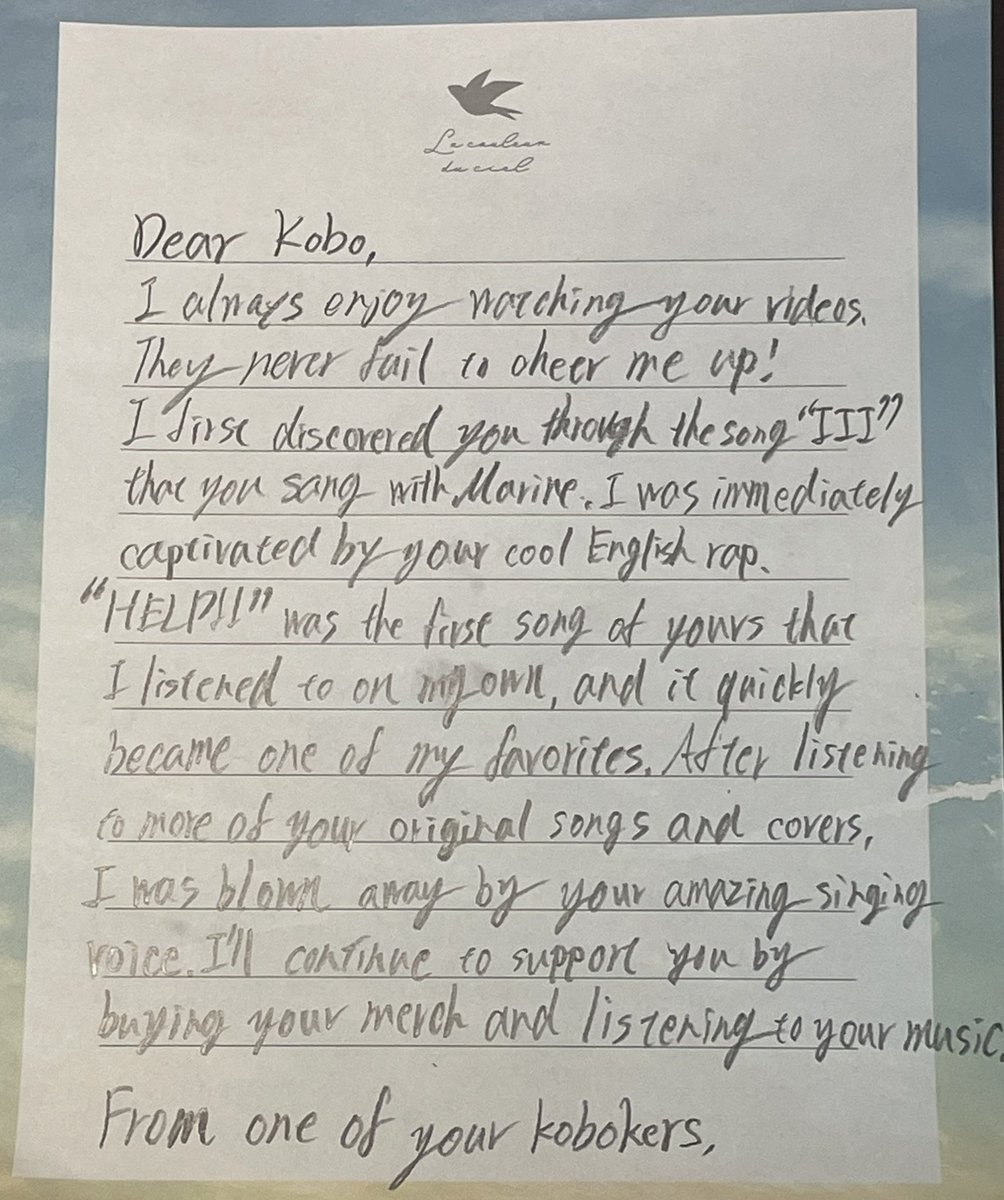 La couleur
du ciel
Dear Kobo,
I always enjoy watching your videos.
They never fail to cheer me up!
I first discovered you through the song "III"
that you sang with Marine. I was immediately
captivated by your cool English rap.
"HELP!!" was the first song of yours that
I listened to on my own, and it quickly
became one of my favorites. After listening
to more of your original songs and covers,
I was blown away by your amazing singing
voice. I'll continue to support you by
buying your merch and listening to your music.
From one of your kobokers,